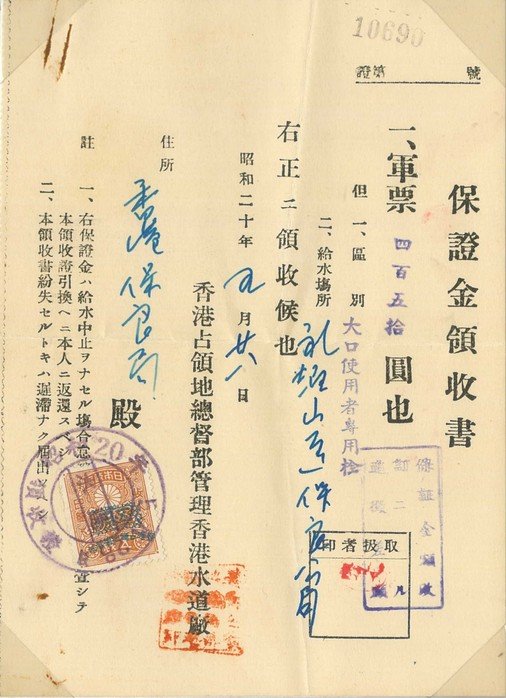 10690
證第 號
保證金領收書
一、軍票 四百五拾 圓也
但 一、區別 大口使用者専用栓
二、給水場所 礼頓山道保良局
右正ニ領收候也
昭和二十年 五月 廿八日
香港占領地總督部管理香港水道廠
住所
香港保良局 殿
註
一、右保證金ハ給水中止ヲナセル場合
本領收證引換ヘニ本人ニ返還スベシ
二、本領收書紛失セルトキハ遲滯ナク屆出
取扱者印